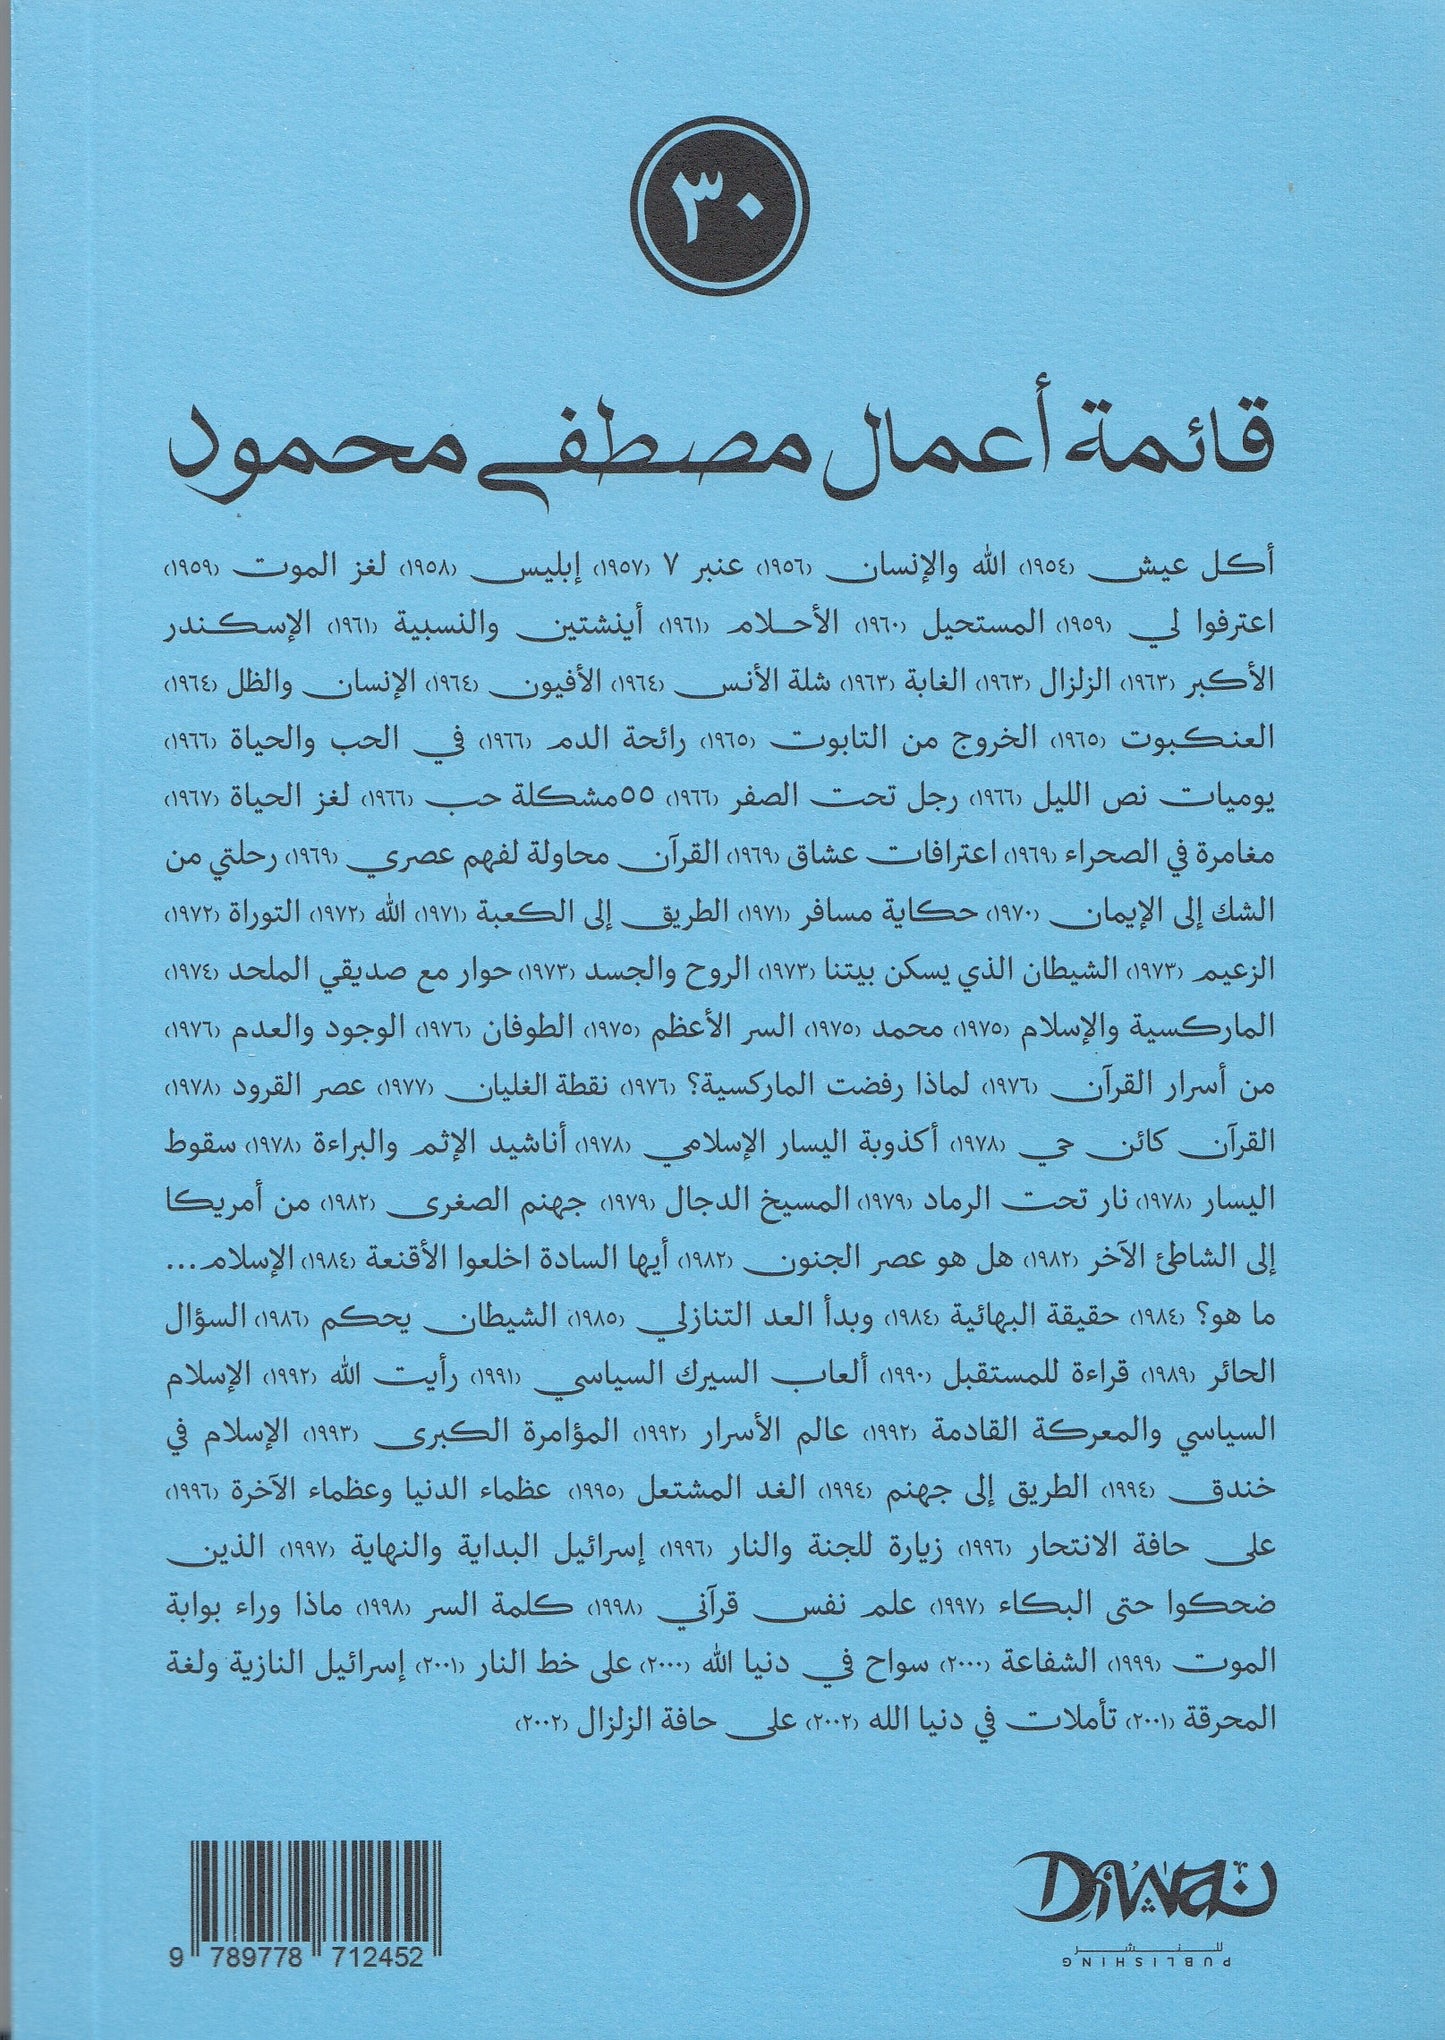 ٣٠
قائمة أعمال مصطفى محمود
أكل عيش (١٩٥٤) الله والإنسان (١٩٥٦) عنبر ٧ (١٩٥٧) إبليس (١٩٥٨) لغز الموت (١٩٥٩)
اعترفوا لي (١٩٥٩) المستحيل (١٩٦٠) الأحلام (١٩٦١) أينشتين والنسبية (١٩٦١) الإسكندر
الأكبر (١٩٦٣) الزلزال (١٩٦٣) الغابة (١٩٦٣) شلة الأنس (١٩٦٤) الأفيون (١٩٦٤) الإنسان والظل (١٩٦٤)
العنكبوت (١٩٦٥) الخروج من التابوت (١٩٦٥) رائحة الدم (١٩٦٦) في الحب والحياة (١٩٦٦)
يوميات نص الليل (١٩٦٦) رجل تحت الصفر (١٩٦٦) ٥٥مشكلة حب (١٩٦٦) لغز الحياة (١٩٦٧)
مغامرة في الصحراء (١٩٦٩) اعترافات عشاق (١٩٦٩) القرآن محاولة لفهم عصري (١٩٦٩) رحلتي من
الشك إلى الإيمان (١٩٧٠) حكاية مسافر (١٩٧١) الطريق إلى الكعبة (١٩٧١) الله (١٩٧٢) التوراة (١٩٧٢)
الزعيم (١٩٧٣) الشيطان الذي يسكن بيتنا (١٩٧٣) الروح والجسد (١٩٧٣) حوار مع صديقي الملحد (١٩٧٤)
الماركسية والإسلام (١٩٧٥) محمد (١٩٧٥) السر الأعظم (١٩٧٥) الطوفان (١٩٧٦) الوجود والعدم (١٩٧٦)
من أسرار القرآن (١٩٧٦) لماذا رفضت الماركسية؟ (١٩٧٦) نقطة الغليان (١٩٧٧) عصر القرود (١٩٧٨)
القرآن كائن حي (١٩٧٨) أكذوبة اليسار الإسلامي (١٩٧٨) أناشيد الإثم والبراءة (١٩٧٨) سقوط
اليسار (١٩٧٨) نار تحت الرماد (١٩٧٩) المسيخ الدجال (١٩٧٩) جهنم الصغرى (١٩٨٢) من أمريكا
إلى الشاطئ الآخر (١٩٨٢) هل هو عصر الجنون (١٩٨٢) أيها السادة اخلعوا الأقنعة (١٩٨٤) الإسلام...
ما هو؟ (١٩٨٤) حقيقة البهائية (١٩٨٤) وبدأ العد التنازلي (١٩٨٥) الشيطان يحكم (١٩٨٦) السؤال
الحائر (١٩٨٩) قراءة للمستقبل (١٩٩٠) ألعاب السيرك السياسي (١٩٩١) رأيت الله (١٩٩٢) الإسلام
السياسي والمعركة القادمة (١٩٩٢) عالم الأسرار (١٩٩٢) المؤامرة الكبرى (١٩٩٣) الإسلام في
خندق (١٩٩٤) الطريق إلى جهنم (١٩٩٤) الغد المشتعل (١٩٩٥) عظماء الدنيا وعظماء الآخرة (١٩٩٦)
على حافة الانتحار (١٩٩٦) زيارة للجنة والنار (١٩٩٦) إسرائيل البداية والنهاية (١٩٩٧) الذين
ضحكوا حتى البكاء (١٩٩٧) علم نفس قرآني (١٩٩٨) كلمة السر (١٩٩٨) ماذا وراء بوابة
الموت (١٩٩٩) الشفاعة (٢٠٠٠) سواح في دنيا الله (٢٠٠٠) على خط النار (٢٠٠١) إسرائيل النازية ولغة
المحرقة (٢٠٠١) تأملات في دنيا الله (٢٠٠٢) على حافة الزلزال (٢٠٠٢)
DiWaN
للنشر
PUBLISHING
9 789778 712452